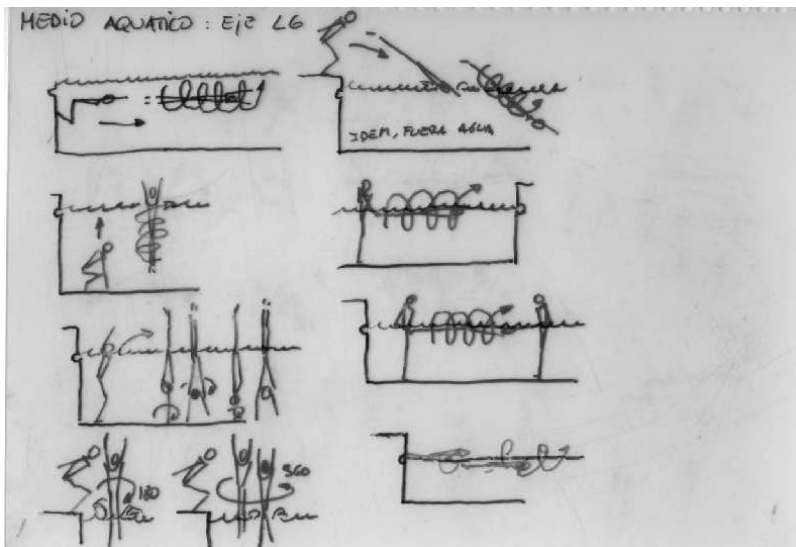 MEDIO AQUATICO: EJE LG
IDEM, FUERA AGUA
180
360